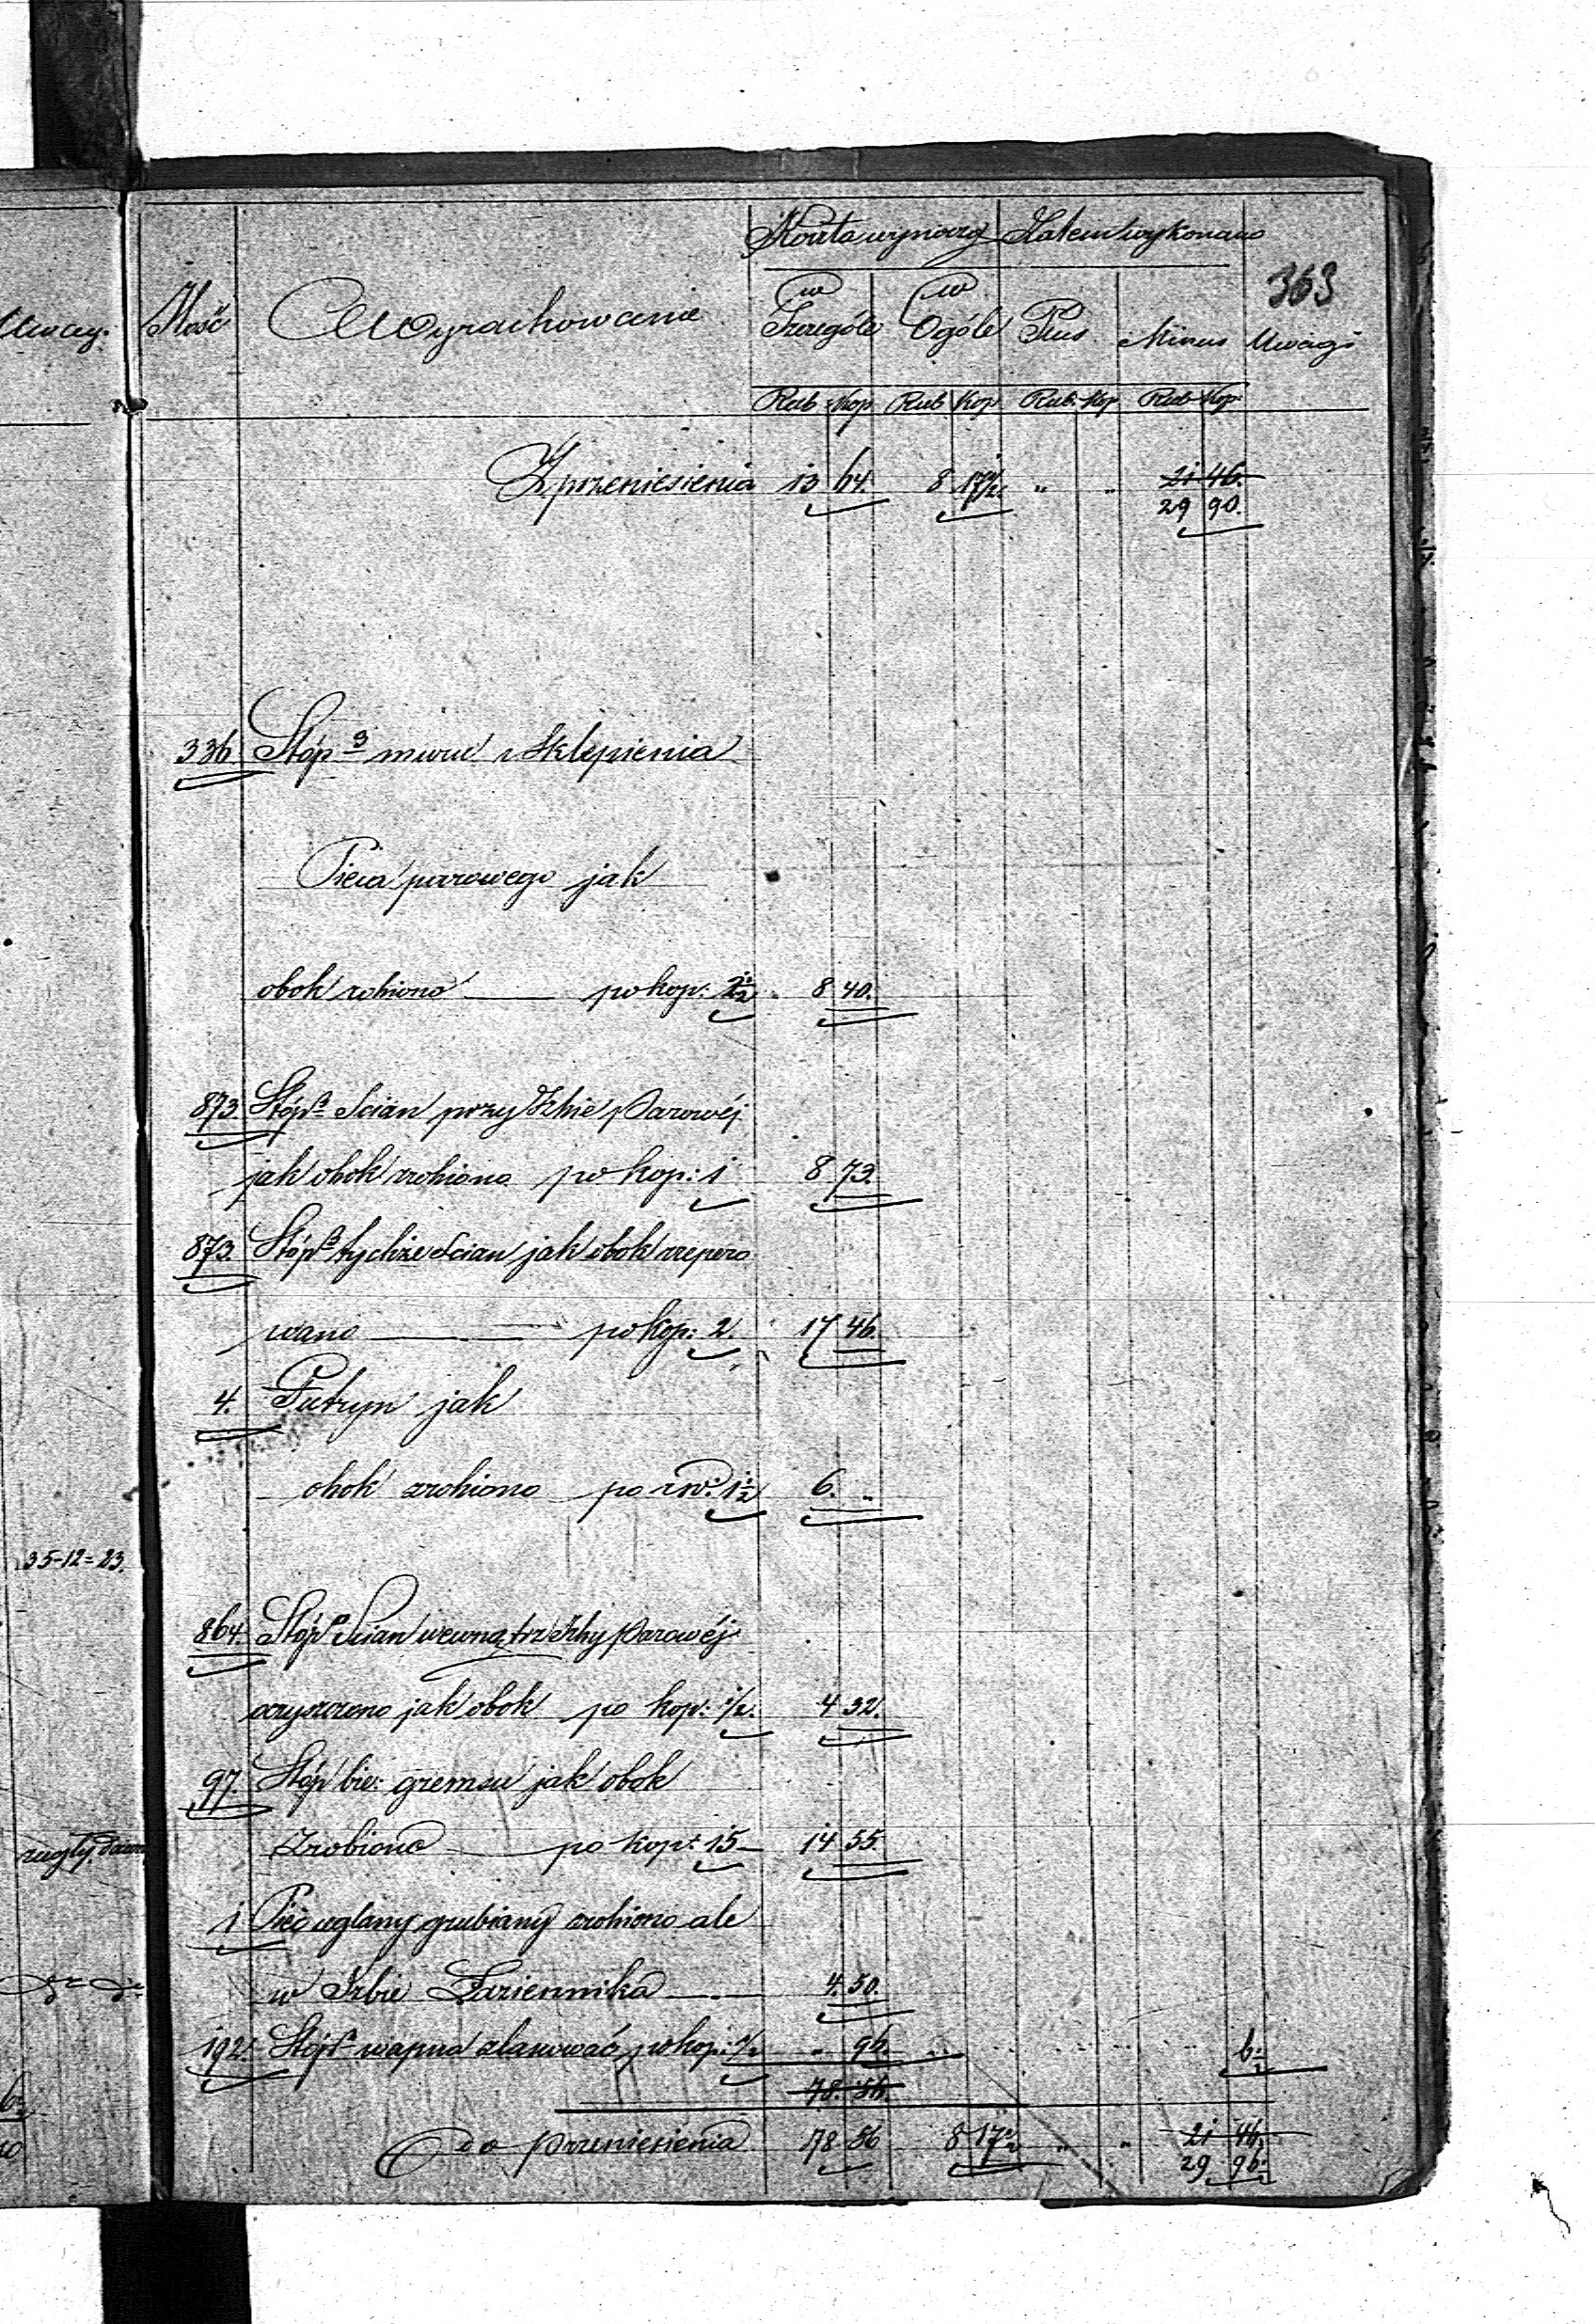 Koszta wynoszą Zatem wykonano
363
Ilość Wyrachowanie w Szczególe w Ogóle Plus Minus Uwagi
Rub Kop Rub Kop Rub Kop Rub Kop
Z przeniesienia 13 64. 8 17 1/2. " " 21 46.
29 90.
336 Stóp 3 muru i Sklepienia
Pieca parowego jak
obok robiono po kop: 2 1/2 8 40.
873 Stóp Scian przy Izbie Parowéj
jak obok zrobiono po kop: 1 8 73.
873. Stóp tychże Scian jak obok zrepero
wano po Kop: 2. 17 46.
4. Futryn jak
obok zrobiono po 1 1/2 6. "
35-12=23.
864. Stóp Scian wewnątrz Izby Parowéj
oczyszczono jak obok po kop: 1/2. 4 32.
97. Stóp bie: gzemsu jak obok
Zrobiono po kop: 15 14 55.
1 Piec zrobiono ale
w Izbie Łaziennika 4. 50.
192. Stóp wapna zlasować po kop: 1/2 " 96. 6 1/2
78. 56.
Do Przeniesienia 78 56 8 17 1/2 " " 21 46.
29 96 1/2